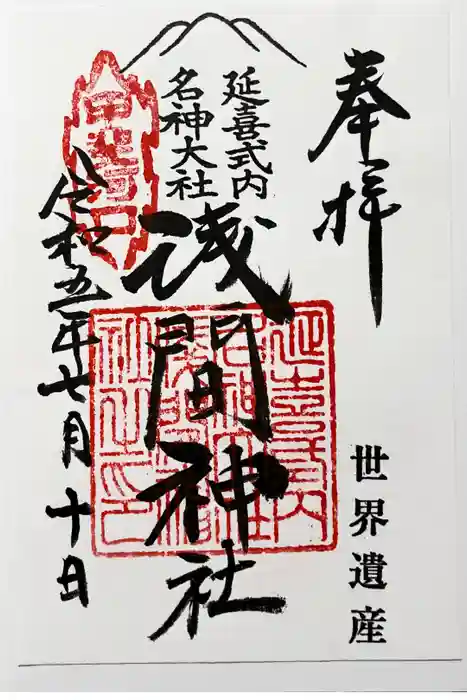 奉拝
世界遺産
延喜式内
名神大社
浅間神社
令和五年七月十日